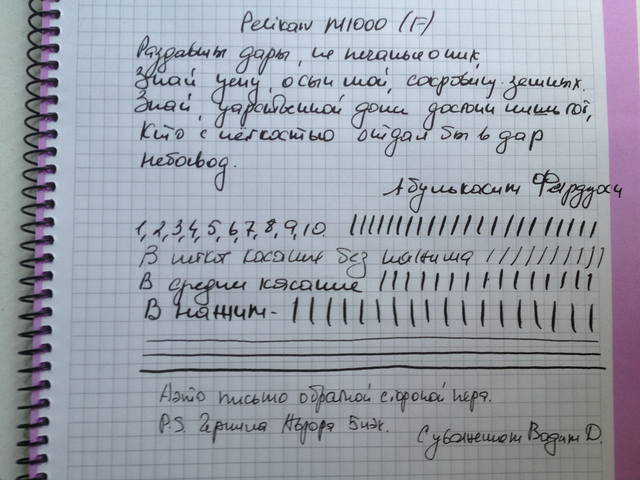 Pelikan M1000 (F)
Раздавши дары, не печалься о них,
Знай цену, о сын мой, сокровищ земных.
Знай, царственной доли достоин лишь тот,
Кто с лёгкостью отдал бы в дар
небосвод.
Абулькасим Фирдоуси
1, 2, 3, 4, 5, 6, 7, 8, 9, 10.
В легкое касание без нажима
В среднее касание
В нажим-
А это письмо обратной стороной пера.
P.S. Чернила Аврора Блэк.
С уважением Вадим Д.